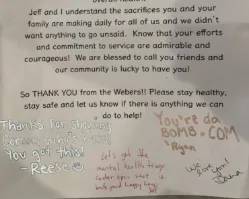 Jeff and I understand the sacrifices you and your
family are making daily for all of us and we didn't
want anything to go unsaid. Know that your efforts
and commitment to service are admirable and
courageous! We are blessed to call you friends and
our community is lucky to have you!
So THANK YOU from the Webers!! Please stay healthy,
stay safe and let us know if there is anything we can
do to help!
Thanks for
You got this!
- Reese
Let's get the
mental health
You're da
BOMB.COM
Ryan
We love you!
Dana